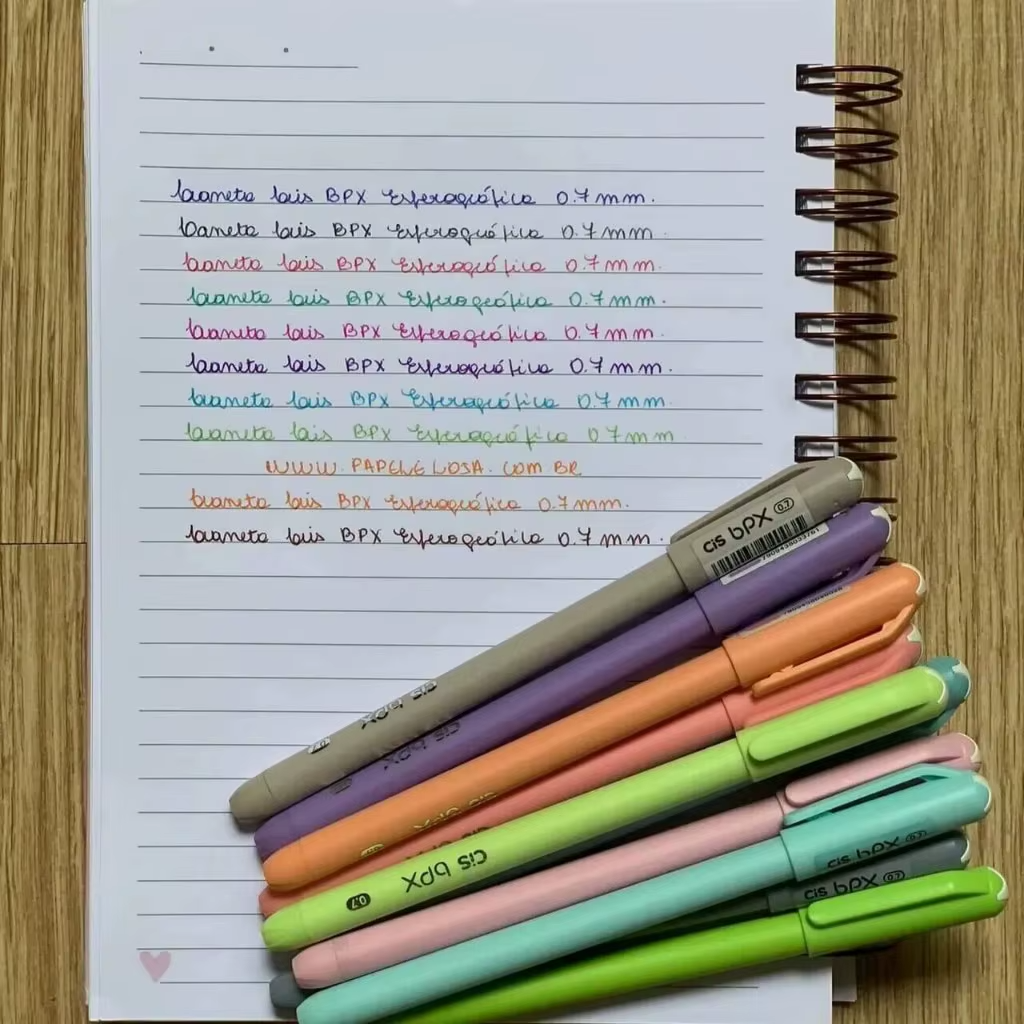 Caneta Cis BPX Esferográfica 0.7mm.
Caneta Cis BPX Esferográfica 0.7mm.
Caneta Cis BPX Esferográfica 0.7mm.
Caneta Cis BPX Esferográfica 0.7mm.
Caneta Cis BPX Esferográfica 0.7mm.
Caneta Cis BPX Esferográfica 0.7mm.
Caneta Cis BPX Esferográfica 0.7mm.
Caneta Cis BPX Esferográfica 0.7mm.
WWW.PAPELELOJA.COM.BR
Caneta Cis BPX Esferográfica 0.7mm.
Caneta Cis BPX Esferográfica 0.7mm.
cis bpx 0.7
cis bpx
cis bpx
cis bpx 0.7
cis bpx 0.7
cis bpx 0.7